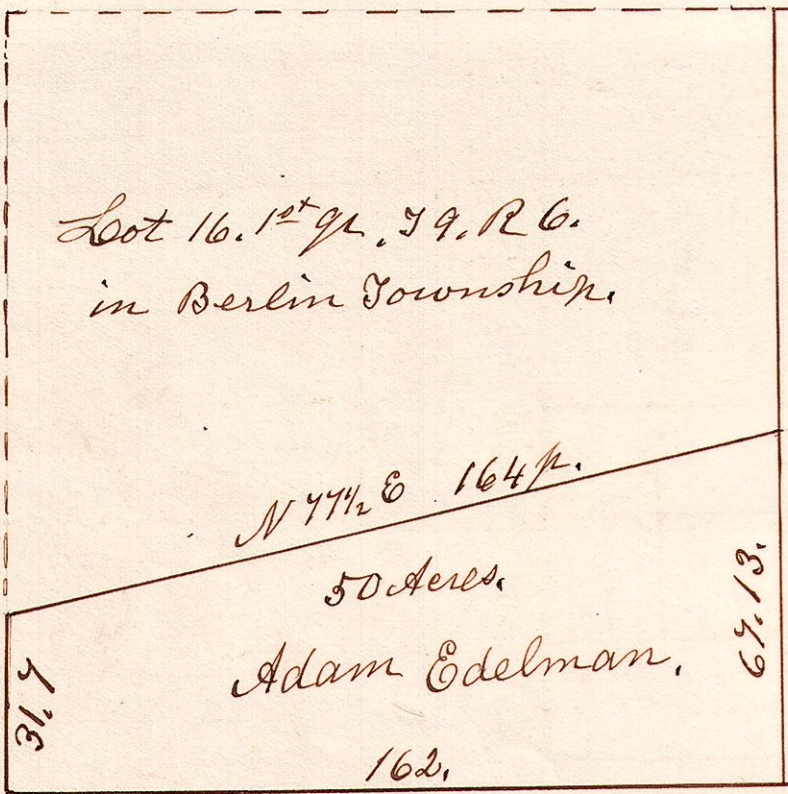 Lot 16. 1st qr. T 9. R 6.
in Berlin Township.
N 77½ E 164 p.
50 Acres.
67.13.
Adam Edelman.
31.7
162.